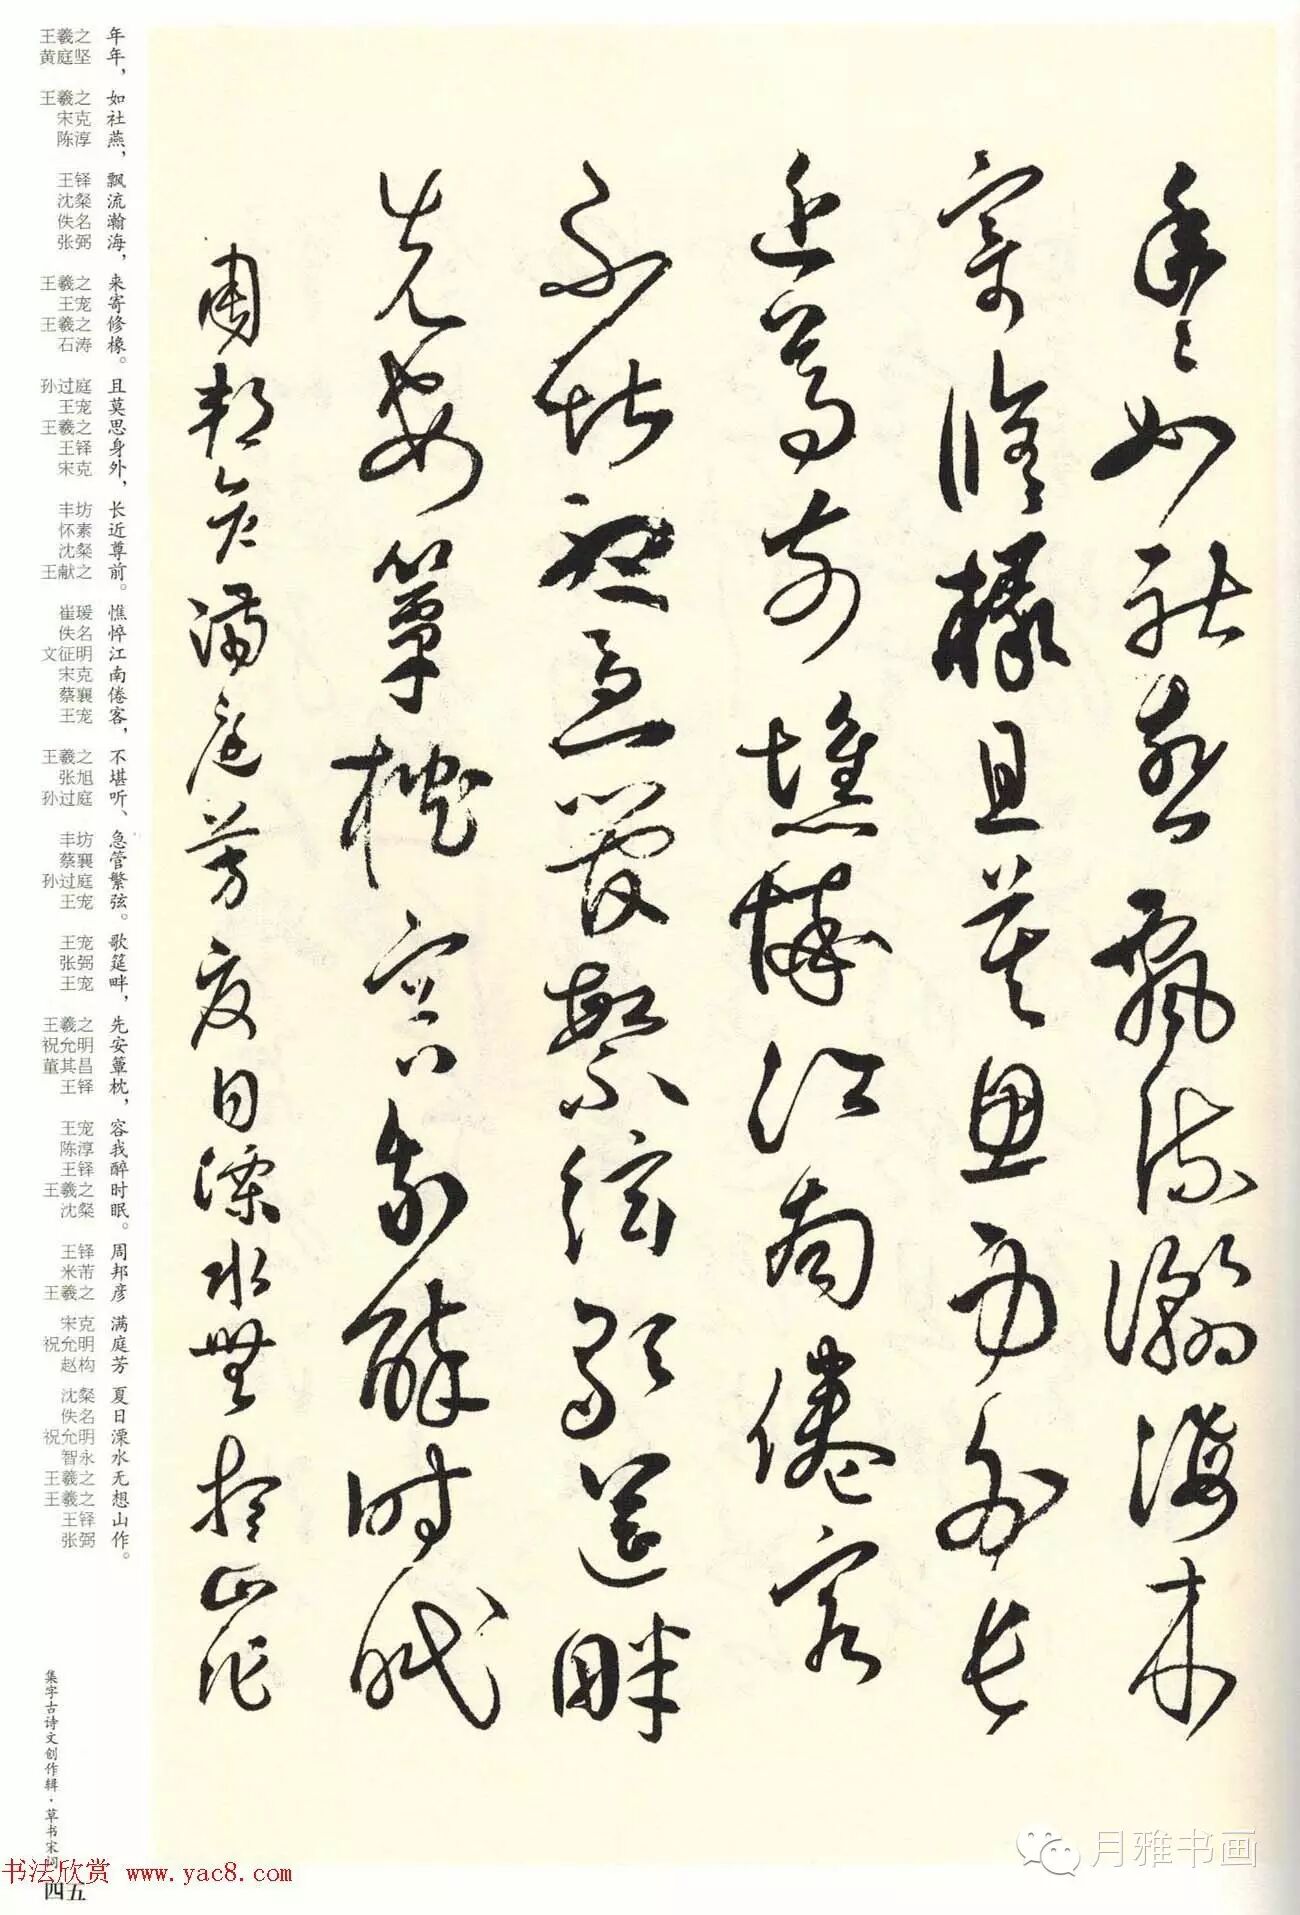 年々如社燕飄流瀚海来
寄修椽且莫思身外长
近尊前憔悴江南倦客
不堪听急管繁弦歌筵畔
先安簟枕容我醉时眠
周邦彦满庭芳夏日溧水無想山作
王羲之 年
黄庭坚 年，
王羲之 如
宋克 社
陈淳 燕，
王铎 飘
沈粲 流
佚名 瀚
张弼 海，
王羲之 来
王宠 寄
王羲之 修
石涛 椽。
孙过庭 且
王宠 莫
王羲之 思
王铎 身
宋克 外，
丰坊 长
怀素 近
沈粲 尊
王献之 前。
崔瑗 憔
佚名 悴
文征明 江
宋克 南
蔡襄 倦
王宠 客，
王羲之 不
张旭 堪
孙过庭 听、
丰坊 急
蔡襄 管
孙过庭 繁
王宠 弦。
王宠 歌
张弼 筵
王宠 畔，
王羲之 先
祝允明 安
董其昌 簟
王铎 枕，
王宠 容
陈淳 我
王铎 醉
王羲之 时
沈粲 眠。
王铎 周
米芾 邦
王羲之 彦
宋克 满
祝允明 庭
赵构 芳
沈粲 夏
佚名 日
祝允明 溧
智永 水
王羲之 无
王羲之 想
王铎 山
张弼 作。
集字古诗文创作辑·草书宋词
书法欣赏 www.yac8.com
四五
月雅书画